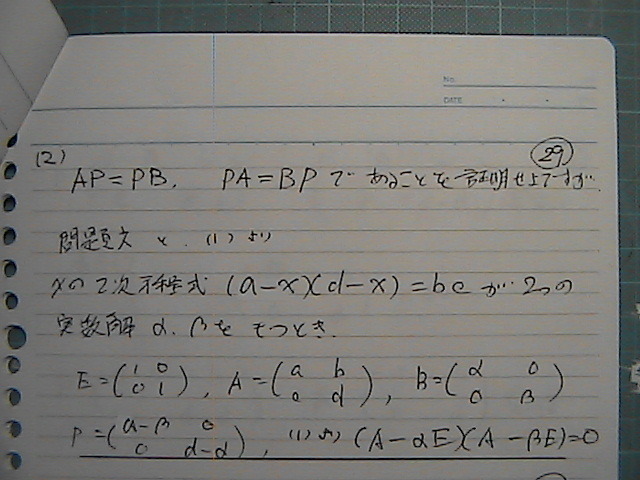 No.
DATE
(29)
(2)
AP=PB, PA=BPであることを証明せよですが.
問題文と、(1)より
xの2次方程式 (a-x)(d-x)=bc が 2つの
実数解 α, βをもつとき.
E=(1 0 0 1), A=(a b c d), B=(α 0 0 β)
P=(a-β 0 0 d-α), (1)より (A-αE)(A-βE)=0